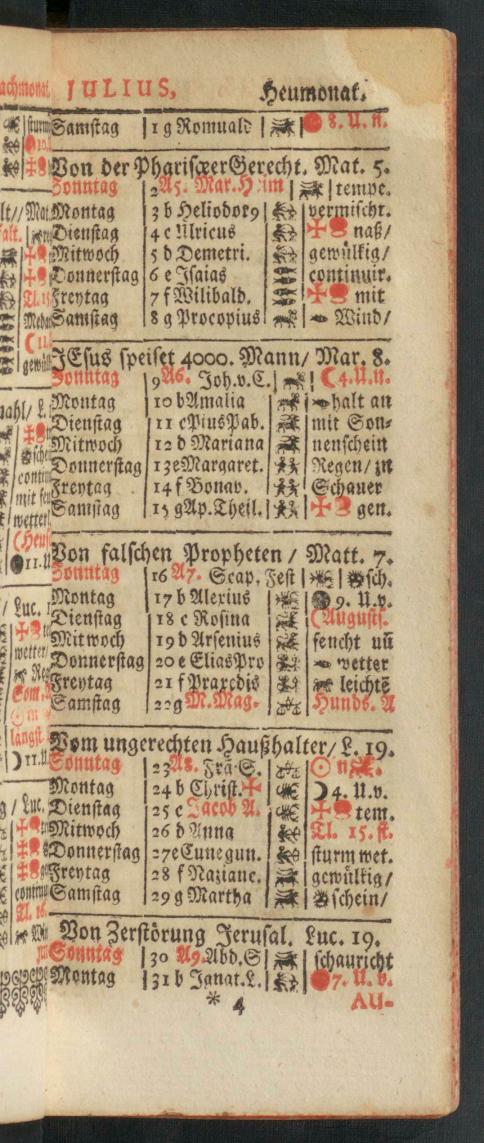 JULIUS, Heumonat.
Samstag 1 g Romuald 8. U. n.
Von der PhariseerGerecht. Mat. 5.
Sonntag 2 A5. Mar. Heim tempe.
Montag 3 b Heliodor9 vermischt.
Dienstag 4 c Ulricus naß/
Mitwoch 5 d Demetri. gewülkig/
Donnerstag 6 e Jsaias continuir.
Freytag 7 f Wilibald. mit
Samstag 8 g Procopius Wind/
JEsus speiset 4000. Mann/ Mar. 8.
Sonntag 9 A6. Joh.v.C. ☾4.U.n.
Montag 10 b Amalia halt an
Dienstag 11 c Pius Pab. mit Son-
Mitwoch 12 d Mariana nenschein
Donnerstag 13 e Margaret. Regen/ in
Freytag 14 f Bonav. Schauer
Samstag 15 g Ap. Theil. gen.
Von falschen Propheten / Matt. 7.
Sonntag 16 A7. Scap. Fest sch.
Montag 17 b Alexius 9. U.v.
Dienstag 18 c Rosina (Augusts.
Mitwoch 19 d Arsenius fencht uñ
Donnerstag 20 e Elias Pro wetter
Freytag 21 f Praxedis leichtẽ
Samstag 22 g M. Mag. Hunds. A
Vom ungerechten Haußhalter/ L. 19.
Sonntag 23 A8. Frã. S. ☉ n
Montag 24 b Christ. ☽4. U.v.
Dienstag 25 c Jacob A. tem.
Mitwoch 26 d Anna Tl. 15. st.
Donnerstag 27 e Cunegun. sturm wet.
Freytag 28 f Nazianc. gewülkig/
Samstag 29 g Martha schein/
Von Zerstörung Jerusal. Luc. 19.
Sonntag 30 A9. Abd. S schauricht
Montag 31 b Ignat. L. 7. U. v.
* 4 AU-